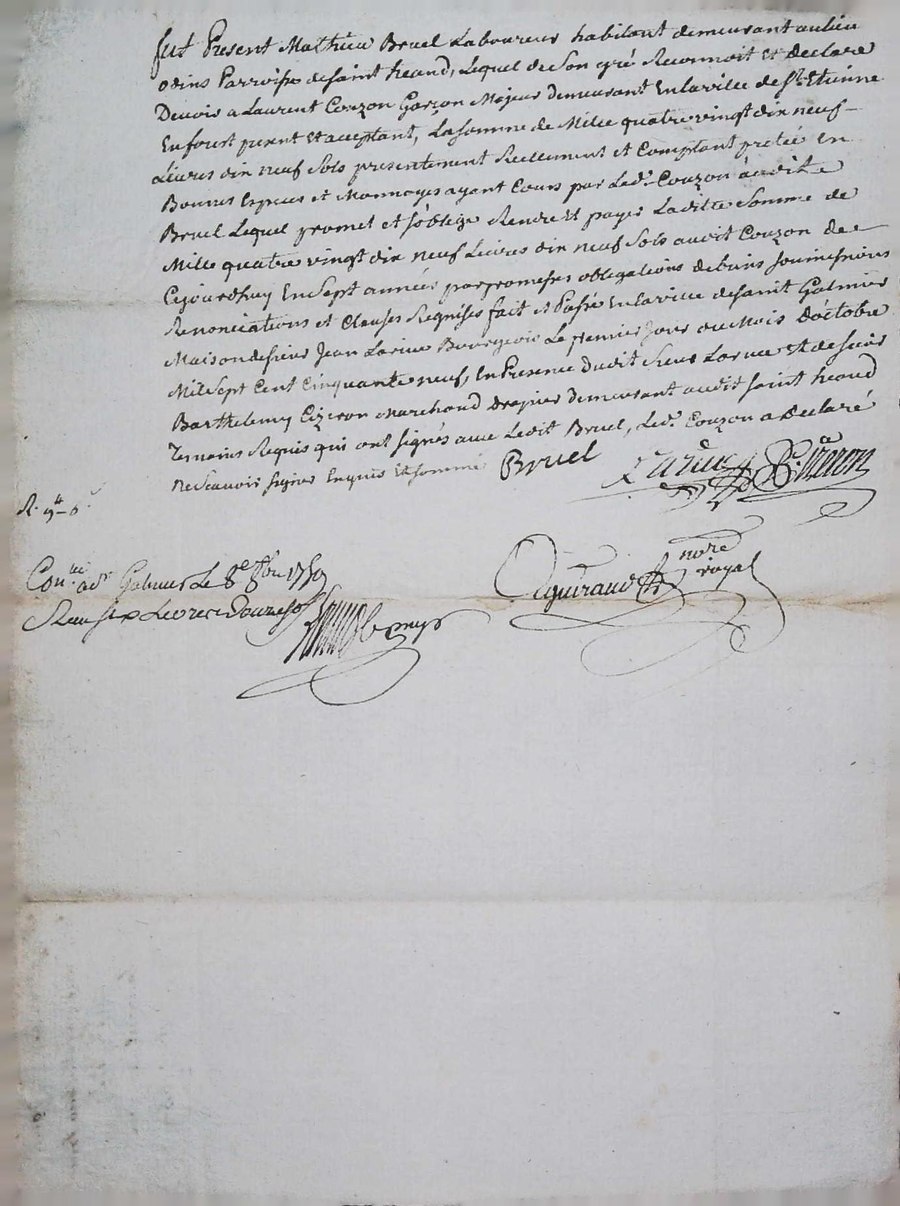 fut Present Mathieu Bruel Laboureur habitant demeurant aulieu
odins Parroisse desaint heand, Lequel de Son gré Reconnoit Et Declare
Devoir a Laurent Couzon Garçon Majeur demeurant Enlaville de St. Etienne
Enforest pnent Et acceptant, Lasomme de Mille quatre vingt dix neuf
Livres dix neuf Sols presentement Reellement et Comptant pretée en
Bonnes Espèces et Monnoyes ayant Cours par Ledt. Couzon audit
Bruel Lequel promet et s'oblige Rendre Et payer Laditte Somme de
Mille quatre vingt dix neuf Livres dix neuf Sols audit Couzon de
Cejourdhuy En Sept années par promesses obligations debiens soumissions
Renonciations et Clauses Requises fait et Passé Enlaville desaint Galmier
Maison desieur Jean Larive Bourgeois Le premier Jour du Mois D'octobre
Mil Sept Cent Cinquante neuf, En Presence dudit Sieur Larive Et de sieur
Barthelemy Cizeron Marchand Drapier demeurant audit saint heand
Temoins Requis qui ont signés avec Ledit Bruel, Led. Couzon a Declaré
ne Scavoir signer Enquis Et sommé Bruel
Larive B. Cizeron
R. 9
Gairaud nore royal
Conlé. a St. Galmier Le 8e 8bre 1759
Reçu six Livres Douze sols